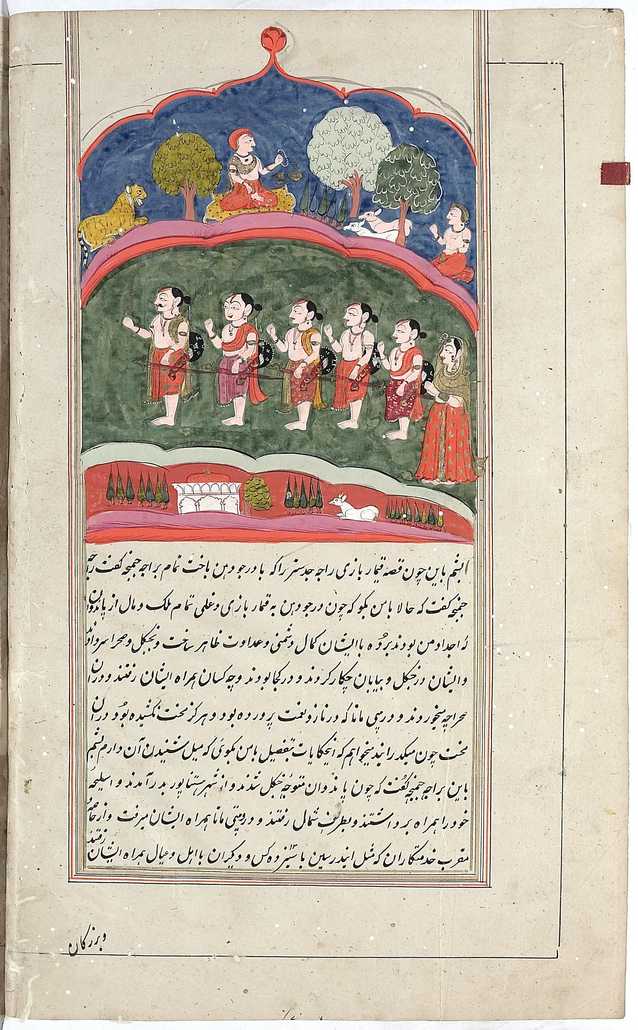 بیشم پاین چون قصه قمار بازی راجه جدستر را که با درجودهن باخت تمام براجه جمیجه گفت راجه
جمیجه گفت که حالا بامن بگو که چون درجودهن به قمار بازی و دغلی تمام ملک و مال از پاندوان
که اجداد من بودند برد و با ایشان کمال دشمنی و عداوت ظاهر ساخت و بجنگل و صحرا سر داد
و ایشان در جنگل و بیابان چکار کردند و در کجا بودند و چه کسان همراه ایشان رفتند و در آن
صحرا چه میخوردند و درپدی ماتا که در ناز و نعمت پرورده بود و هرگز محنت نکشیده بود در آن
محنت چون میگذرانید میخواهم که این حکایات بتفصیل بامن بگوی که میل شنیدن آن دارم بیشم
پاین براجه جمیجه گفت که چون پاندوان متوجه جنگل شدند و از شهر هستناپور بدر آمدند و اسلحه
خود را همراه برداشتند و بطرف شمال رفتند و درپدی ماتا همراه ایشان میرفت و از خاصان
مقرب خدمتگاران که مثل ایندرسین با سیزده کس و دیگران با اهل و عیال همراه ایشان رفتند
و بزرگان